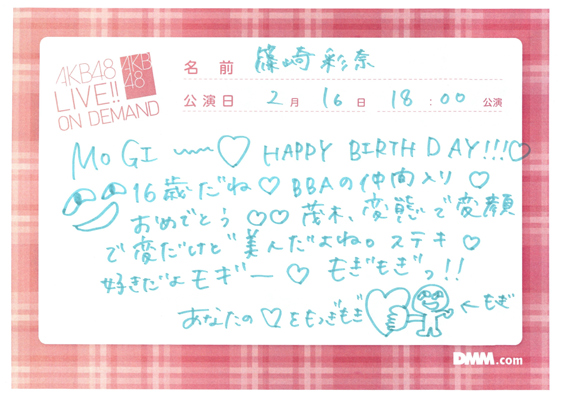 AKB48
LIVE!!
ON DEMAND
AKB
48
名前 篠崎彩奈
公演日 2月 16日 18:00 公演
MOGI 〰♡ HAPPY BIRTHDAY!!!♡
16歳だね♡ BBAの仲間入り♡
おめでとう♡♡ 茂木、変態で変顔
で変だけど美人だよね。ステキ♡
好きだよモギー♡ もぎもぎっ!!
あなたの♡をもっぎもぎ
←もぎ
DMM.com